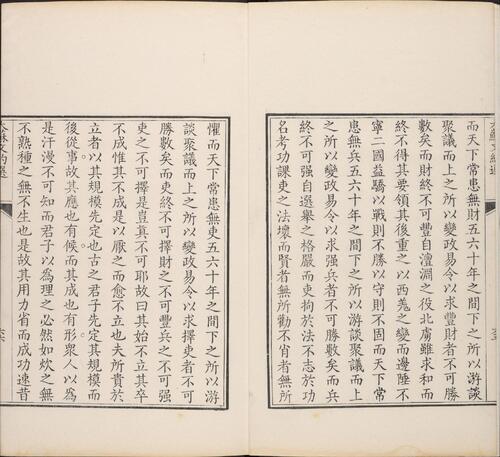 而天下常患無財五六十年之間下之所以游談
聚議而上之所以變政易令以求豐財者不可勝
數矣而財終不可豐自澶淵之役北虜雖求和而
終不得其要領其後重之以西羗之變而邊陲不
寧二國益驕以戰則不勝以守則不固而天下常
患無兵五六十年之間下之所以游談聚議而上
之所以變政易令以求强兵者不可勝數矣而兵
終不可强自選舉之格嚴而吏拘於法不志於功
名考功課吏之法壞而賢者無所勸不肖者無所
懼而天下常患無吏五六十年之間下之所以游
談聚議而上之所以變政易令以求擇吏者不可
勝數矣而吏終不可擇財之不可豐兵之不可强
吏之不可擇是豈真不可耶故曰其始不立其卒
不成惟其不成是以厭之而愈不立也夫所貴於
立者以其規模先定也古之君子先定其規模而
後從事故其應也有候而其成也有形衆人以爲
是汗漫不可知而君子以爲理之必然如炊之無
不熟種之無不生也是故其用力省而成功速昔